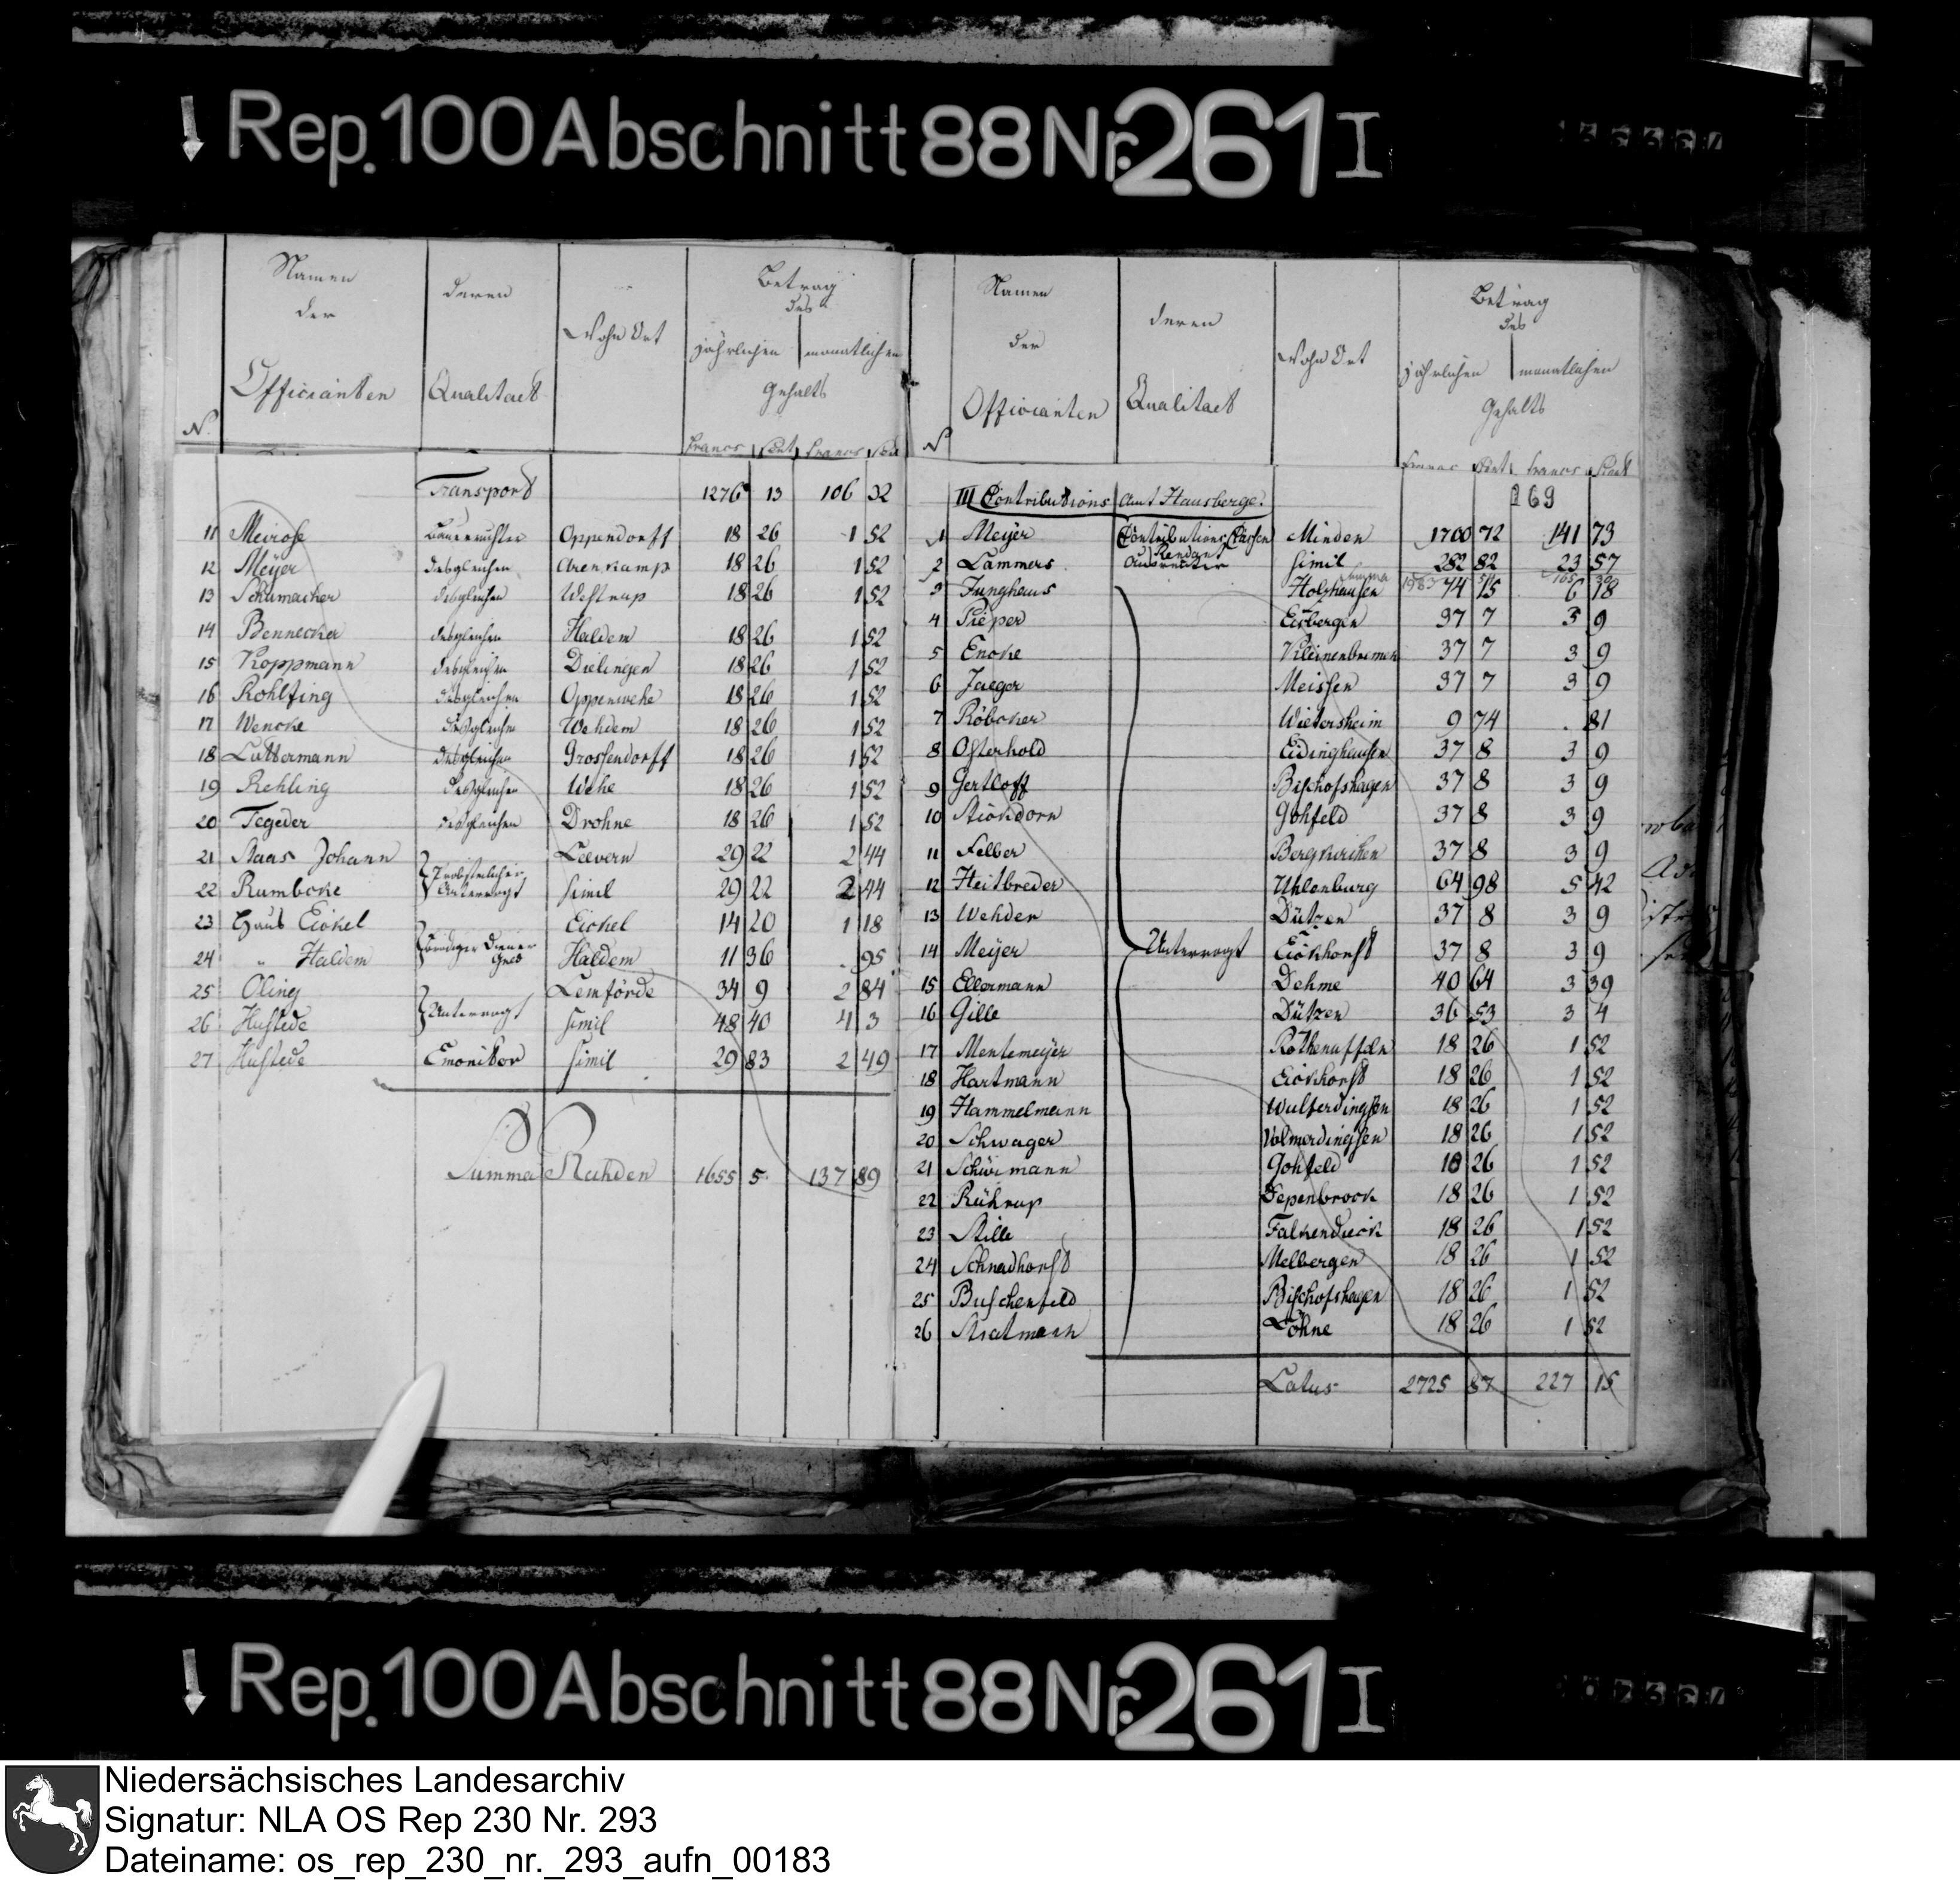 Rep. 100 Abschnitt 88 Nr. 261 I
Namen der Officianten
deren Qualitaet
Wohn Ort
Betrag des
jährlichen monatlichen
Gehalts
N.
Francs Cent. Francs Cent
Transport 1276 13 106 32
11 Meirose Bauerrichter Oppendorff 18 26 1 52
12 Meyer desgleichen Arenkamp 18 26 1 52
13 Schumacher desgleichen Westrup 18 26 1 52
14 Bennecker desgleichen Haldem 18 26 1 52
15 Koppmann desgleichen Dielingen 18 26 1 52
16 Rohlfing desgleichen Oppenwehe 18 26 1 52
17 Wencke desgleichen Wehdem 18 26 1 52
18 Luttermann desgleichen Grossendorff 18 26 1 52
19 Rehling desgleichen Wehe 18 26 1 52
20 Tegeder desgleichen Drohne 18 26 1 52
21 Staas Johann Leevern 29 22 2 44
22 Rumbcke Untervogt simil 29 22 2 44
23 Haus Eickel Eickel 14 20 1 18
24 " Haldem Haldem 11 36 . 95
25 Oling Lemförde 34 9 2 84
26 Hustede Untervogt simil 48 40 4 3
27 Hustede Emonitor simil 29 83 2 49
Summa Rahden 1655 5 137 89
Namen der Officianten
deren Qualitaet
Wohn Ort
Betrag des
jährlichen monatlichen
Gehalts
N
Francs Cent. Francs Cent
III Contributions Amt Hausberge.
169
1 Meyer Contributions Cassen Rendant Minden 1700 72 141 73
2 Lammers Ausreuter simil 282 82 23 57
Summa 1983 54 165 30
3 Junghaus Holzhausen 74 15 6 18
4 Pieper Eisbergen 37 7 3 9
5 Encke Kleinenbremen 37 7 3 9
6 Jaeger Meissen 37 7 3 9
7 Röbcker Wietersheim 9 74 . 81
8 Osterhold Eidinghausen 37 8 3 9
9 Gertloff Bischofshagen 37 8 3 9
10 Stickdorn Gohfeld 37 8 3 9
11 Felber Bergkirchen 37 8 3 9
12 Heitbreder Uhlenburg 64 98 5 42
13 Wehder Dützen 37 8 3 9
14 Meyer Untervogt Eickhorst 37 8 3 9
15 Ellermann Dehme 40 64 3 39
16 Gille Dützen 36 53 3 4
17 Mentemeyer Rothenuffeln 18 26 1 52
18 Hartmann Eickhorst 18 26 1 52
19 Hammelmann Wulferdingsen 18 26 1 52
20 Schwager Volmerdingsen 18 26 1 52
21 Schürmann Gohfeld 18 26 1 52
22 Rührup Depenbrock 18 26 1 52
23 Stille Falkendieck 18 26 1 52
24 Schnadhorst Melbergen 18 26 1 52
25 Buschenfeld Bischofshagen 18 26 1 52
26 Stratmann Löhne 18 26 1 52
Latus 2725 87 227 15
Rep. 100 Abschnitt 88 Nr. 261 I
Niedersächsisches Landesarchiv
Signatur: NLA OS Rep 230 Nr. 293
Dateiname: os_rep_230_nr._293_aufn_00183